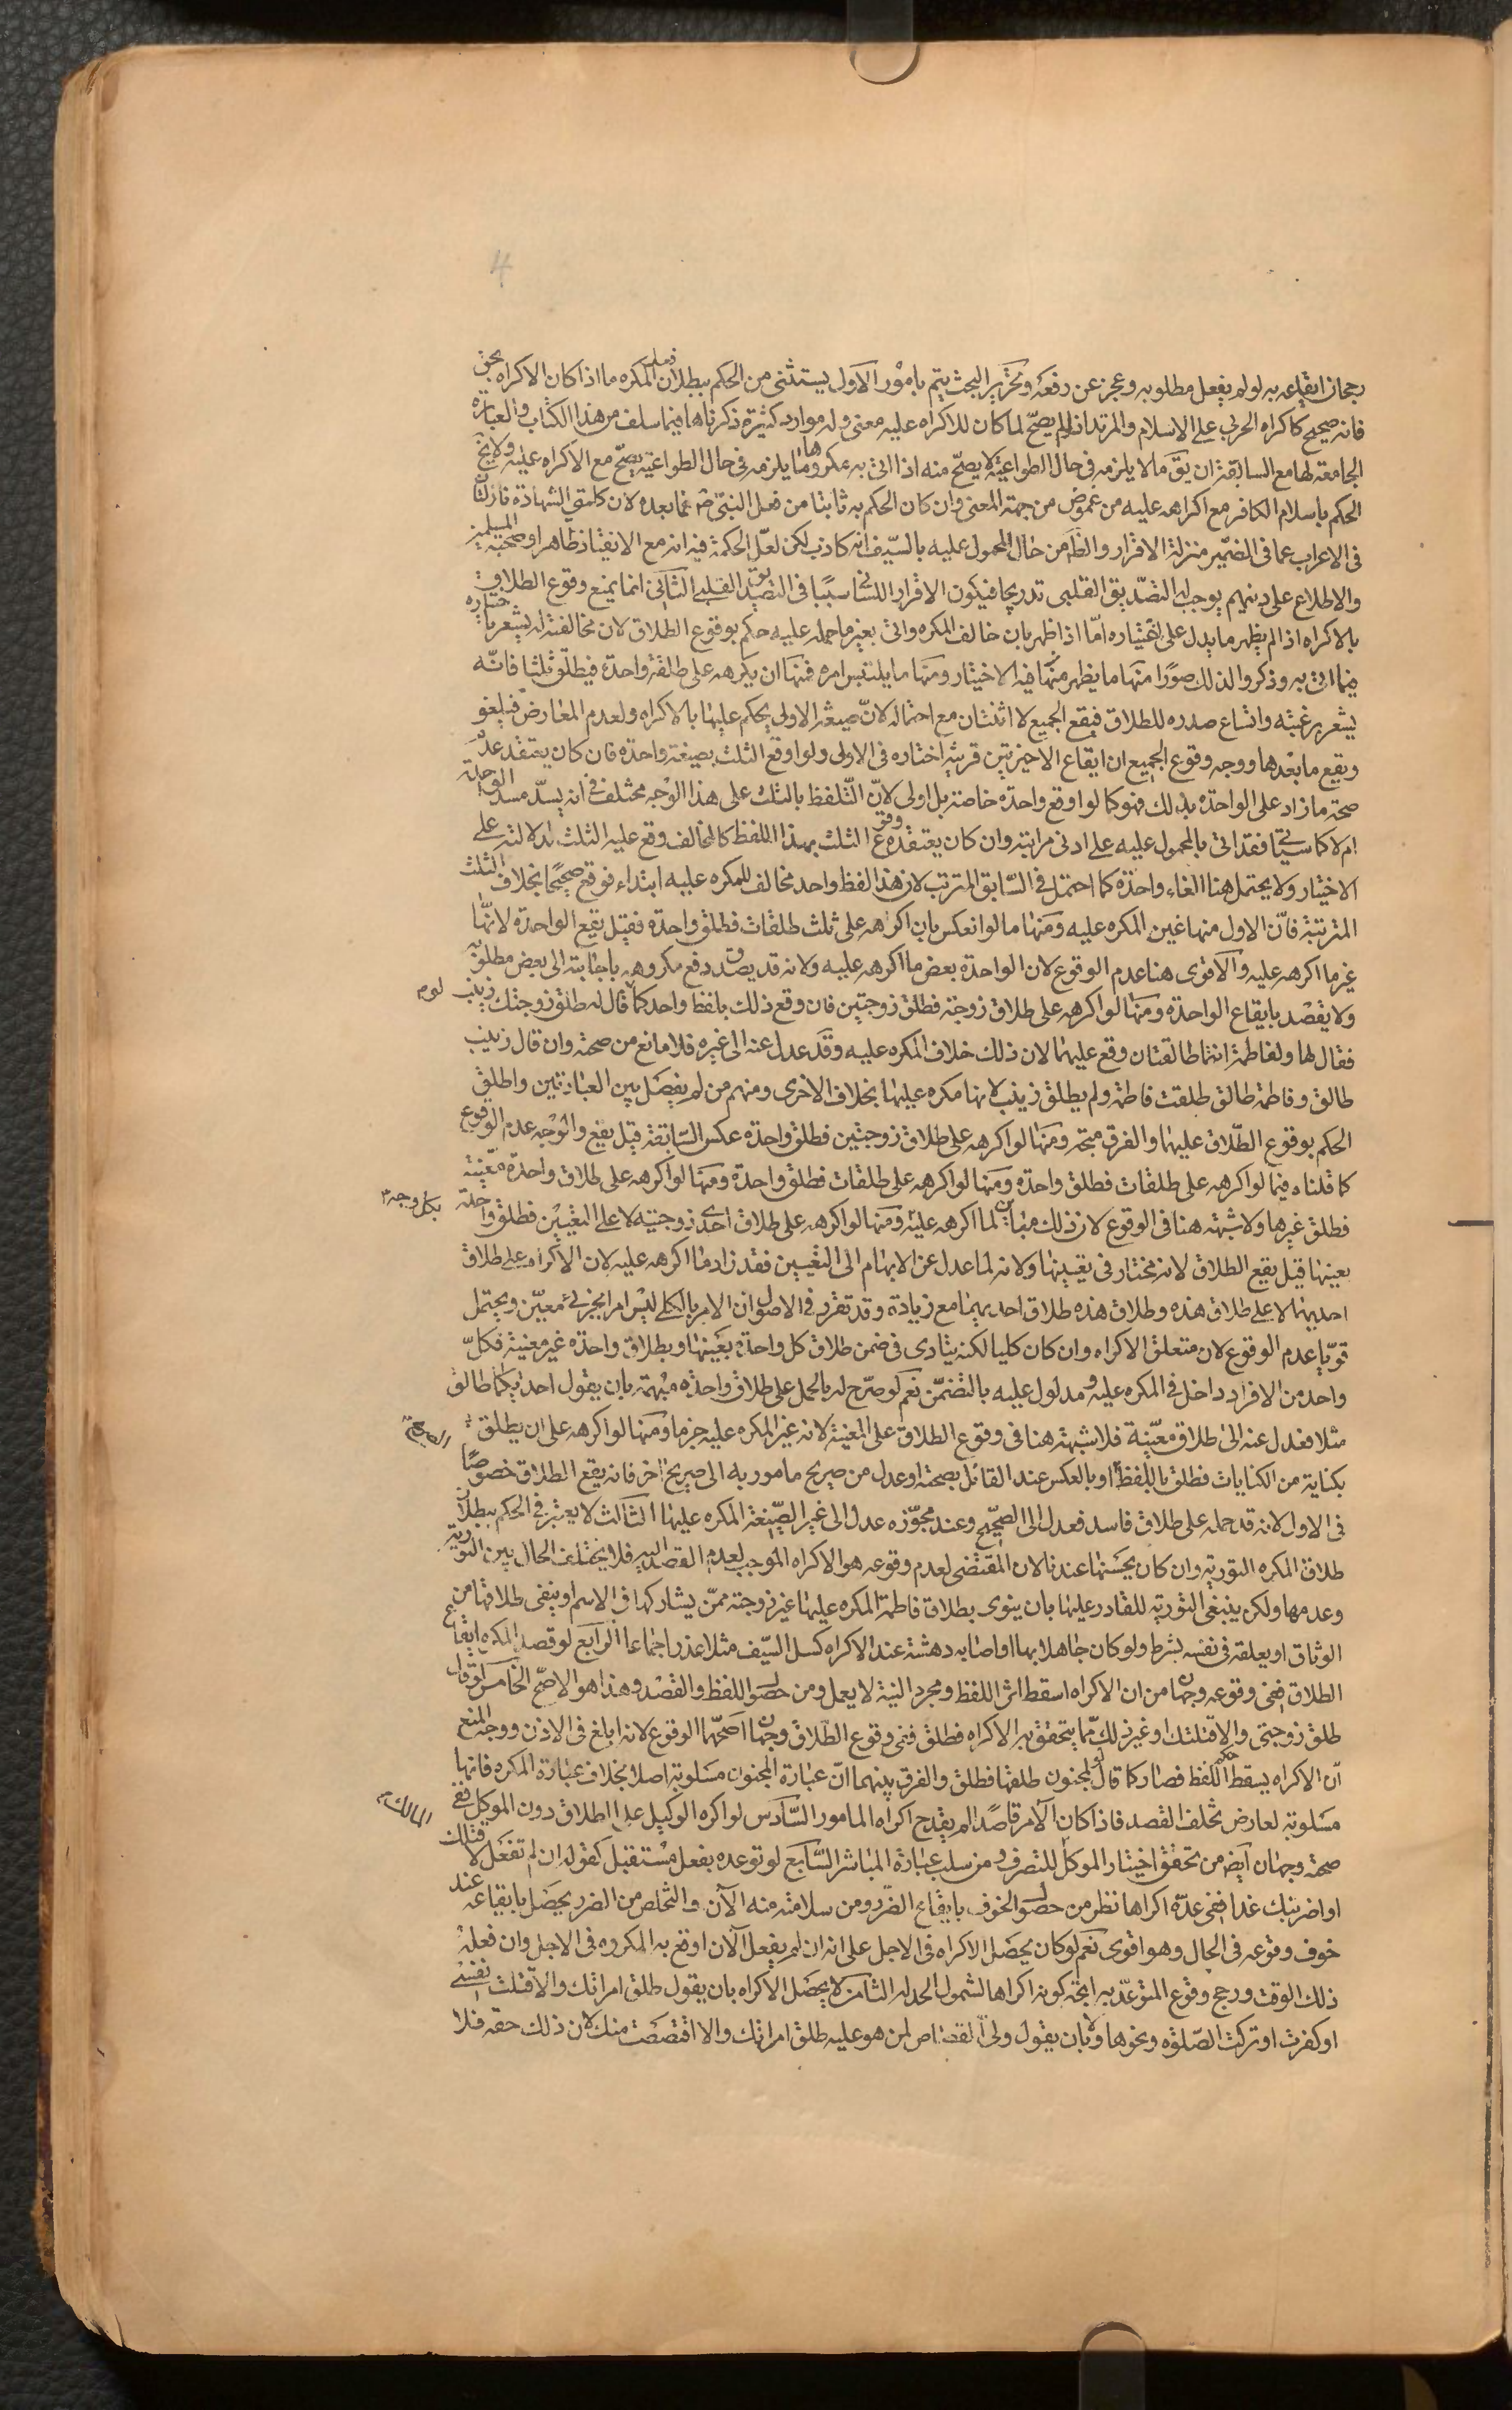 4
رجحان ايقاعه به لو لم يفعل مطلوبه وعجز عن دفعه وتحرير البحث يتم بامور الاول يستثنى من الحكم ببطلان فعل المكره ما اذا كان الاكراه بحق
فانه صحيح كاكراه الحربى على الاسلام والمرتد اذ لو لم يصح لما كان للاكراه عليه معنى وله موارد كثيرة ذكرناها فيما سلف من هذا الكتاب والعبارة
الجامعة لها مع السابقة ان يق ما لا يلزمه فى حال الطواعية لا يصح منه اذا اتى به مكروها وما يلزمه فى حال الطواعية يصح مع الاكراه عليه ولا يخ
الحكم باسلام الكافر مع اكراهه عليه من غموض من جهة المعنى وان كان الحكم به ثابتا من فعل النبى ص فما بعده لان كلمتى الشهادة نازلتان
فى الاعراب عما فى الضمير منزلة الاقرار والظ من حال المحمول عليه بالسيف انه كاذب لكن لعل الحكمة فيه انه مع الانقياد ظاهرا وصحبة المسلمين
والاطلاع على دينهم يوجب له التصديق القلبى تدريجا فيكون الاقرار اللسانى سببا فى التصديق القلبى الثانى انما يمنع وقوع الطلاق
بالاكراه اذا لم يظهر ما يدل على اختياره اما اذا ظهر بان خالف المكره واتى بغير ما حمله عليه حكم بوقوع الطلاق لان مخالفته له يشعر باختياره
فيما اتى به وذكروا لذلك صورا منها ما يظهر منها فيه الاختيار ومنها ما يلتبس امره فمنها ان يكرهه على طلقة واحدة فيطلق ثلثا فانه
يشعر برغبته واتساع صدره للطلاق فيقع الجميع لا اثنتان مع احتماله لان صيغة الاولى يحكم عليها بالاكراه ولعدم المعارض فيلغو
ويقع ما بعدها ووجه وقوع الجميع ان ايقاع الاخيرتين قرينة اختاره فى الاولى ولو اوقع الثلث بصيغة واحدة فان كان يعتقد عدم
صحة ما زاد على الواحدة بذلك فهو كما لو اوقع واحدة خاصة بل اولى لان التلفظ بالثلث على هذا الوجه مختلف فى انه يسد مسد الواحدة
ام لا كما سيأتى فقد اتى بالمحمول عليه على ادنى مراتبه وان كان يعتقد وقوع الثلث بهذا اللفظ كالمخالف وقع عليه الثلث لدلالته على
الاختيار ولا يحتمل هنا الغاء واحدة كما احتمل فى السابق المترتب لان هذا لفظ واحد مخالف للمكره عليه ابتداء فوقع صحيحا بخلاف الثلث
المترتبة فان الاول منها عين المكره عليه ومنها ما لو انعكس بان اكرهه على ثلث طلقات فطلق واحدة فقيل تقع الواحدة لانها
غير ما اكرهه عليه والاقوى هنا عدم الوقوع لان الواحدة بعض ما اكرهه عليه ولانه قد يصدق دفع مكروهه باجابته الى بعض مطلوبه
ولا يقصد بايقاع الواحدة ومنها لو اكرهه على طلاق زوجة فطلق زوجتين فان وقع ذلك بلفظ واحد كما لو قال له طلق زوجتك زينب
فقال لها ولفاطمة انتما طالقتان وقع عليهما لان ذلك خلاف المكره عليه وقد عدل عنه الى غيره فلا مانع من صحته وان قال زينب
طالق وفاطمة طالق طلقت فاطمة ولم يطلق زينب لانها مكره عليها بخلاف الاخرى ومنهم من لم يفصل بين العبارتين واطلق
الحكم بوقوع الطلاق عليهما والفرق متجه ومنها لو اكرهه على طلاق زوجتين فطلق واحدة عكس السابقة قيل يقع والوجه عدم الوقوع
كما قلناه فيما لو اكرهه على طلقات فطلق واحدة ومنها لو اكرهه على طلقات فطلق واحدة ومنها لو اكرهه على طلاق واحدة معينة
فطلق غيرها ولا شبهة هنا فى الوقوع لان ذلك مباين لما اكرهه عليه بكل وجه ومنها لو اكرهه على طلاق احدى زوجتيه لا على التعيين فطلق واحدة
بعينها قيل يقع الطلاق لانه مختار فى تعيينها ولانه لما عدل عن الابهام الى التعيين فقد زاد ما اكرهه عليه لان الاكراه على طلاق
احديهما لا على طلاق هذه وطلاق هذه طلاق احديهما مع زيادة وقد تقرر فى الاصول ان الامر بالكلى ليس امرا بجزئى معين ويحتمل
قويا عدم الوقوع لان متعلق الاكراه وان كان كليا لكنه يتادى فى ضمن طلاق كل واحدة بعينها وبطلاق واحدة غير معينة فكل
واحد من الافراد داخل فى المكره عليه ومدلول عليه بالتضمن نعم لو صرح له بالحمل على طلاق واحدة مبهمة بان يقول احديكما طالق
مثلا فعدل عنه الى طلاق معينة فلا شبهة هنا فى وقوع الطلاق على المعينة لانه غير المكره عليه جزما ومنها لو اكرهه على ان يطلق
بكناية من الكنايات فطلق باللفظ الصريح او بالعكس عند القائل بصحته او عدل من صريح مامور به الى صريح اخر فانه يقع الطلاق خصوصا
فى الاول لانه قد حمله على طلاق فاسد فعدل الى الصحيح وعند مجوزه عدل الى غير الصيغة المكره عليها الثالث لا يعتبر فى الحكم ببطلان
طلاق المكره التورية وان كان يحسنها عندنا لان المقتضى لعدم وقوعه هو الاكراه الموجب لعدم القصد اليه فلا يختلف الحال بين التورية
وعدمها ولكن ينبغى التورية للقادر عليها بان ينوى بطلاق فاطمة المكره عليها غير زوجته ممن يشاركها فى الاسم او ينفى طلاقها من
الوثاق او يعلقه فى نفسه بشرط ولو كان جاهلا بها او اصابه دهشة عند الاكراه كسل السيف مثلا عذر اجماعا الرابع لو قصد المكره ايقاع
الطلاق ففى وقوعه وجهان من ان الاكراه اسقط اثر اللفظ ومجرد النية لا يعمل ومن حصول اللفظ والقصد وهذا هو الاصح الخامس لو قال
طلق زوجتى والا قتلتك او غير ذلك مما يتحقق به الاكراه فطلق ففى وقوع الطلاق وجهان اصحهما الوقوع لانه ابلغ فى الاذن ووجه المنع
ان الاكراه يسقط حكم اللفظ فصار كما لو قال لمجنون طلقها فطلق والفرق بينهما ان عبارة المجنون مسلوبة اصلا بخلاف عبارة المكره فانها
مسلوبة لعارض تخلف القصد فاذا كان الامر قاصدا لم يقدح اكراه المامور السادس لو اكره الوكيل على الطلاق دون الموكل ففى
صحته وجهان ايض من تحقق اختيار الموكل المالك للتصرف ومن سلب عبارة المباشر السابع لو توعده بفعل مستقبل كقوله ان لم تفعل لاقتلنك
او اضربنك غدا ففى عده اكراها نظر من حصول الخوف بايقاع الضرر ومن سلامته منه الآن والتخلص من الضرر يحصل بايقاعه عند
خوف وقوعه فى الحال وهو اقوى نعم لو كان محصل الاكراه فى الاجل على انه ان لم يفعل الآن اوقع به المكروه فى الاجل وان فعله
ذلك الوقت ورجح وقوع المتوعد به اتجه كونه اكراها لشمول الحد له الثامن لا يحصل الاكراه بان يقول طلق امراتك والا قتلت نفسى
او كفرت او تركت الصلوة ونحوها ولا بان يقول ولى القصاص لمن هو عليه طلق امراتك والا اقتصصت منك لان ذلك حقه فلا